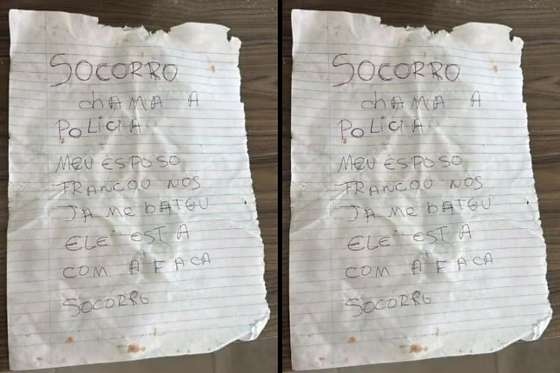 SOCORRO
chAMA A
POLICIA
MEU ESPOSO
TRANCOU NOS
JA ME bATEU
ELE ESTA
COM A FACA
SOCORRO
SOCORRO
chAMA A
POLICIA
MEU ESPOSO
TRANCOU NOS
JA ME bATEU
ELE ESTA
COM A FACA
SOCORRO